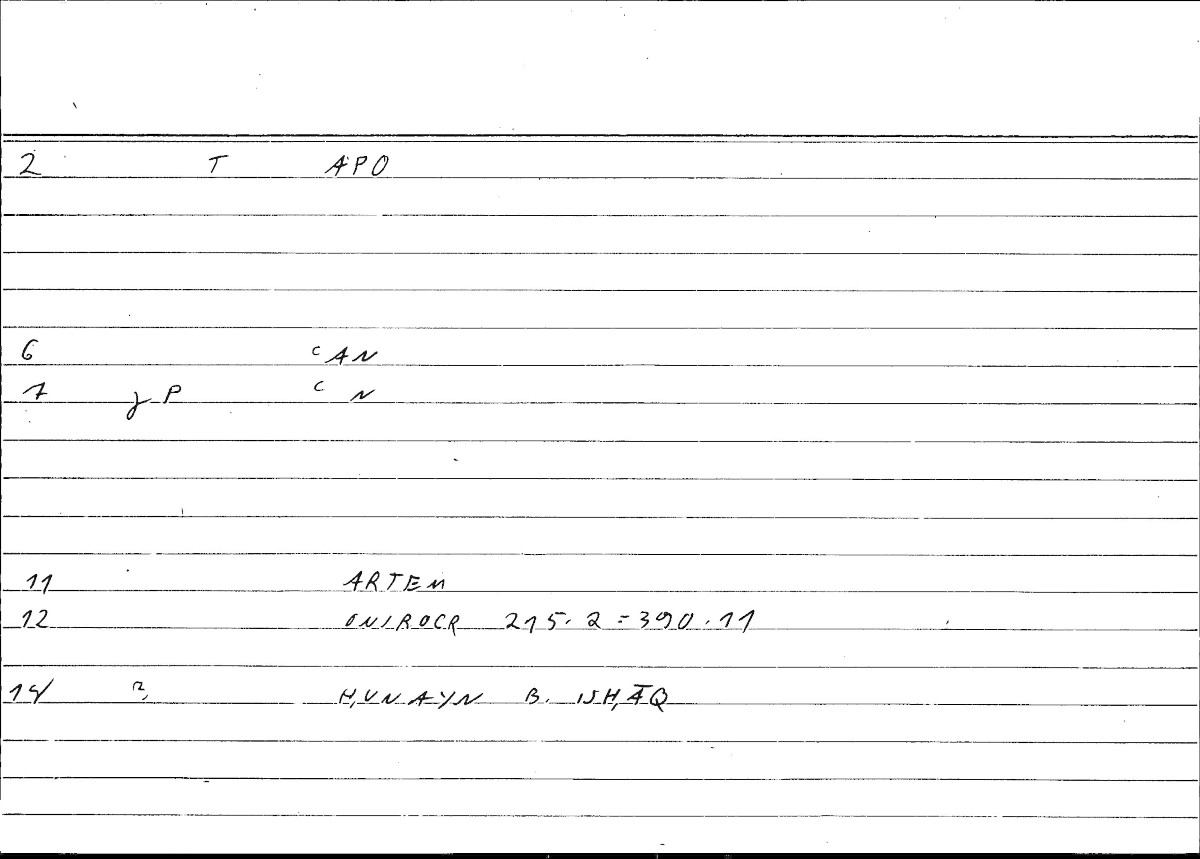 2 T APO
6 ʿAN
7 P ʿ N
11 ARTEM
12 ONIROCR 215.2 = 390.11
14 ḤUNAYN B. ISḤĀQ